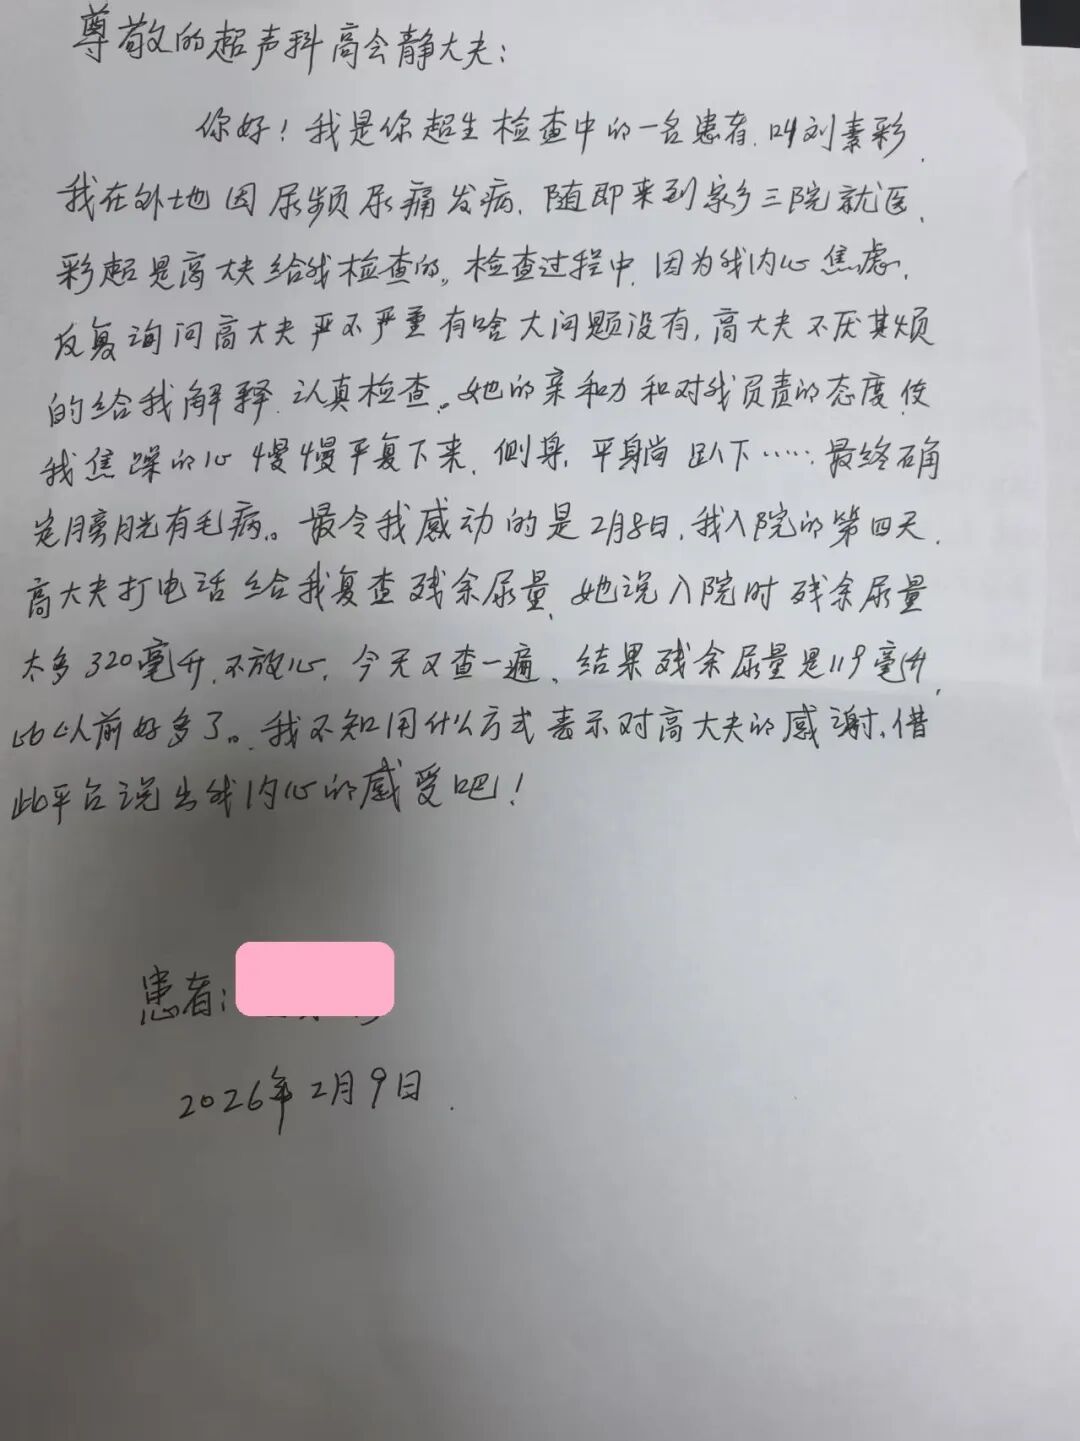 尊敬的超声科高会静大夫：
你好！我是你超生检查中的一名患者，叫刘素彩，
我在外地因尿频尿痛发病，随即来到家乡三院就医，
彩超是高大夫给我检查的。检查过程中，因为我内心焦虑，
反复询问高大夫严不严重有啥大问题没有，高大夫不厌其烦
的给我解释，认真检查。她的亲和力和对我负责的态度使
我焦躁的心慢慢平复下来，侧身，平躺，趴下……最终确
定膀胱有毛病。最令我感动的是2月8日，我入院的第四天，
高大夫打电话给我复查残余尿量，她说入院时残余尿量
太多320毫升，不放心，今天又查一遍，结果残余尿量是119毫升，
比以前好多了。我不知用什么方式表示对高大夫的感谢，借
此平台说出我内心的感受吧！
患者：
2026年2月9日.